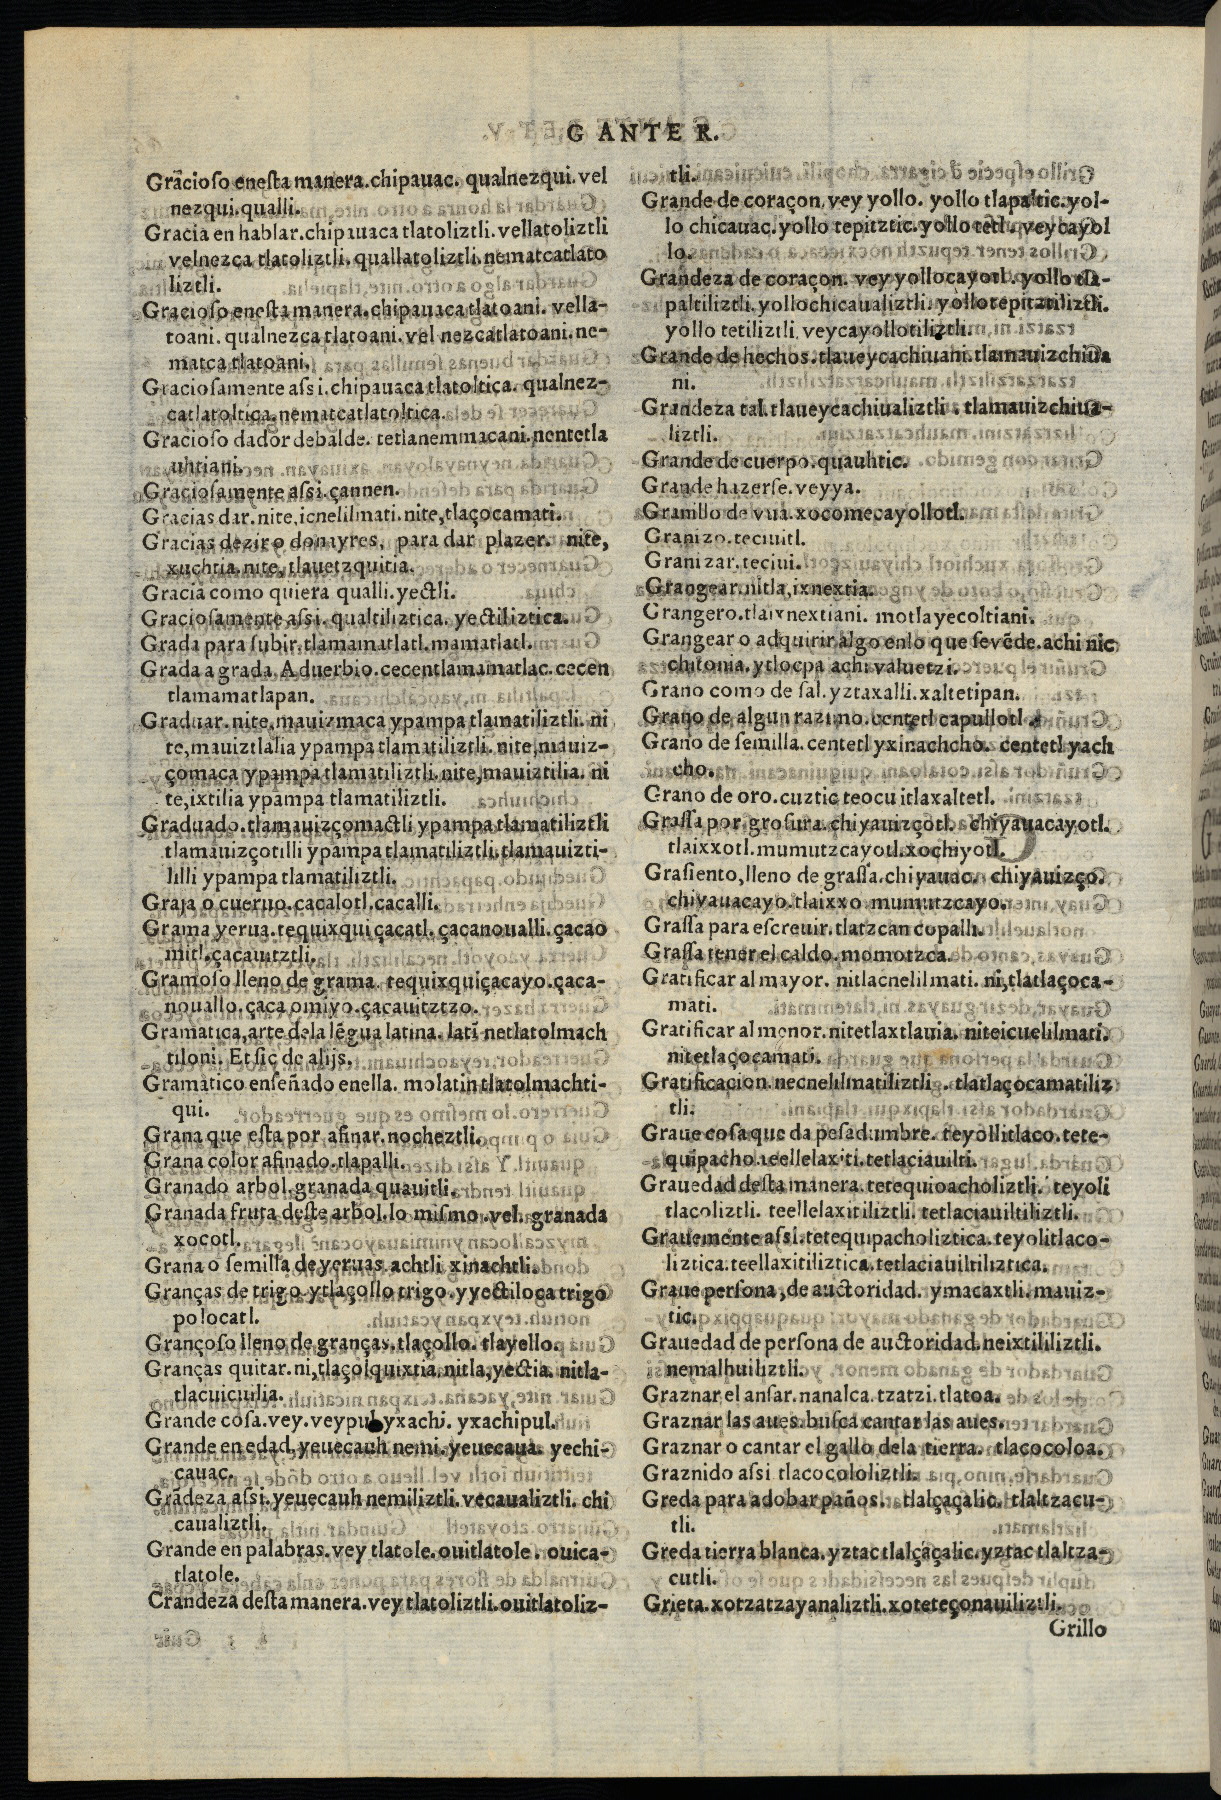 G ANTE R.
Gracioso enesta manera.chipauac. qualnezqui.vel
nezqui.qualli.
Gracia en hablar.chipauaca tlatoliztli.vellatoliztli
velnezca tlatoliztli.quallatoliztli.nematcatlato
liztli.
Gracioso enesta manera.chipauaca tlatoani. vella-
toani.qualnezca tlatoani.vel nezcatlatoani.ne-
matca tlatoani.
Graciosamente assi.chipauaca tlatoltica. qualnez-
catlatoltica.nematcatlatoltica.
Gracioso dador debalde. tetlanemmacani.nentetla
uhtiani.
Graciosamente assi.çannen.
Gracias dar.nite,icnelilmati.nite,tlaçocamati.
Gracias dezir o donayres, para dar plazer. nite,
xuchtia.nite,tlauetzquitia.
Gracia como quiera qualli.yectli.
Graciosamente assi.qualtiliztica. yectiliztica.
Grada para subir.tlamamatlatl.mamatlatl.
Grada a grada. Aduerbio.cecentlamamatlac.cecen
tlamamatlapan.
Graduar.nite,mauizmaca ypampa tlamatiliztli. ni
te,mauiztlalia ypampa tlamatiliztli.nite,mauiz-
çomaca ypampa tlamatiliztli.nite,mauiztilia. ni
te,ixtilia ypampa tlamatiliztli.
Graduado.tlamauizçomactli ypampa tlamatiliztli
tlamauizçotilli ypampa tlamatiliztli.tlamauizti-
lilli ypampa tlamatiliztli.
Graja o cueruo.cacalotl.cacalli.
Grama yerua.tequixqui çacatl. çacanoualli.çacao
mitl.çacauitztli.
Gramoso lleno de grama. tequixquiçacayo.çaca-
nouallo.çaca omiyo.çacauitztzo.
Gramatica,arte dela lẽgua latina. latĩ netlatolmach
tiloni. Et sic de alijs.
Gramatico enseñado enella. molatintlatolmachti-
qui.
Grana que esta por afinar.nocheztli.
Grana color afinado.tlapalli.
Granado arbol.granada quauitli.
Granada fruta deste arbol.lo mismo .vel. granada
xocotl.
Grana o semilla de yeruas.achtli xinachtli.
Granças de trigo.ytlaçollo trigo.yyectiloca trigo
polocatl.
Grançoso lleno de granças.tlaçollo. tlayello.
Granças quitar.ni,tlaçolquixtia.nitla,yectia. nitla-
tlacuicuilia.
Grande cosa.vey.veypul yxachi. yxachipul.
Grande en edad.yeuecauh nemi.yeuecaua. yechi-
cauac.
Grãdeza assi.yeuecauh nemiliztli.vecaualiztli. chi
caualiztli.
Grande en palabras.vey tlatole.ouitlatole.ouica-
tlatole.
Crandeza desta manera.vey tlatoliztli.ouitlatoliz-
tli.
Grande de coraçon.vey yollo. yollo tlapaltic.yol-
lo chicauac.yollo tepitztic.yollo tetl. veycayol
lo.
Grandeza de coraçon. vey yollocayotl. yollo tla-
paltiliztli.yollochicaualiztli.yollotepitztiliztli.
yollo tetiliztli.veycayollotiliztli.
Grande de hechos.tlaueycachiuani.tlamauizchiua
ni.
Grandeza tal.tlaueycachiualiztli . tlamauizchiua-
liztli.
Grande de cuerpo.quauhtic.
Grande hazerse.veyya.
Granillo de vua.xocomecayollotl.
Granizo.teciuitl.
Granizar.teciui.
Grangear.nitla,ixnextia.
Grangero.tlaixnextiani. motlayecoltiani.
Grangear o adquirir algo enlo que se vẽde.achi nic
chitonia.ytlocpa achi valuetzi.
Grano como de sal.yztaxalli.xaltetipan.
Grano de algun razimo.centetl capullotl
Grano de semilla.centetl yxinachcho. centetl yach
cho.
Grano de oro.cuztic teocuitlaxaltetl.
Grassa por grosura.chiyauizçotl. chiyauacayotl.
tlaixxotl.mumutzcayotl.xochiyotl.
Grasiento,lleno de grassa.chiyauac. chiyauizço.
chiyauacayo.tlaixxo.mumutzcayo.
Grassa para escreuir.tlatzcan copalli.
Grassa tener el caldo.momotzca.
Gratificar al mayor. nitlacnelilmati. ni,tlatlaçoca-
mati.
Gratificar al menor.nitetlaxtlauia. niteicuelilmati.
nitetlaçocamati.
Gratificacion.necnelilmatiliztli . tlatlaçocamatiliz
tli.
Graue cosa que da pesadumbre. teyollitlaco.tete-
quipacho.teellelaxiti.tetlaciauilti.
Grauedad desta manera.tetequioacholiztli. teyoli
tlacoliztli. teellelaxitiliztli. tetlaciauiltiliztli.
Grauemente assi.tetequipacholiztica.teyolitlaco-
liztica.teellaxitiliztica.tetlaciauiltiliztica.
Graue persona,de auctoridad. ymacaxtli.mauiz-
tic.
Grauedad de persona de auctoridad.neixtililiztli.
nemalhuiliztli.
Graznar el ansar.nanalca.tzatzi.tlatoa.
Graznar las aues.busca cantar las aues.
Graznar o cantar el gallo dela tierra. tlacocoloa.
Graznido assi.tlacocololiztli.
Greda para adobar paños. tlalçaçalic. tlaltzacu-
tli.
Greda tierra blanca.yztac tlalçaçalic.yztac tlaltza-
cutli.
Grieta.xotzatzayanaliztli.xoteteçonauiliztli.
Grillo